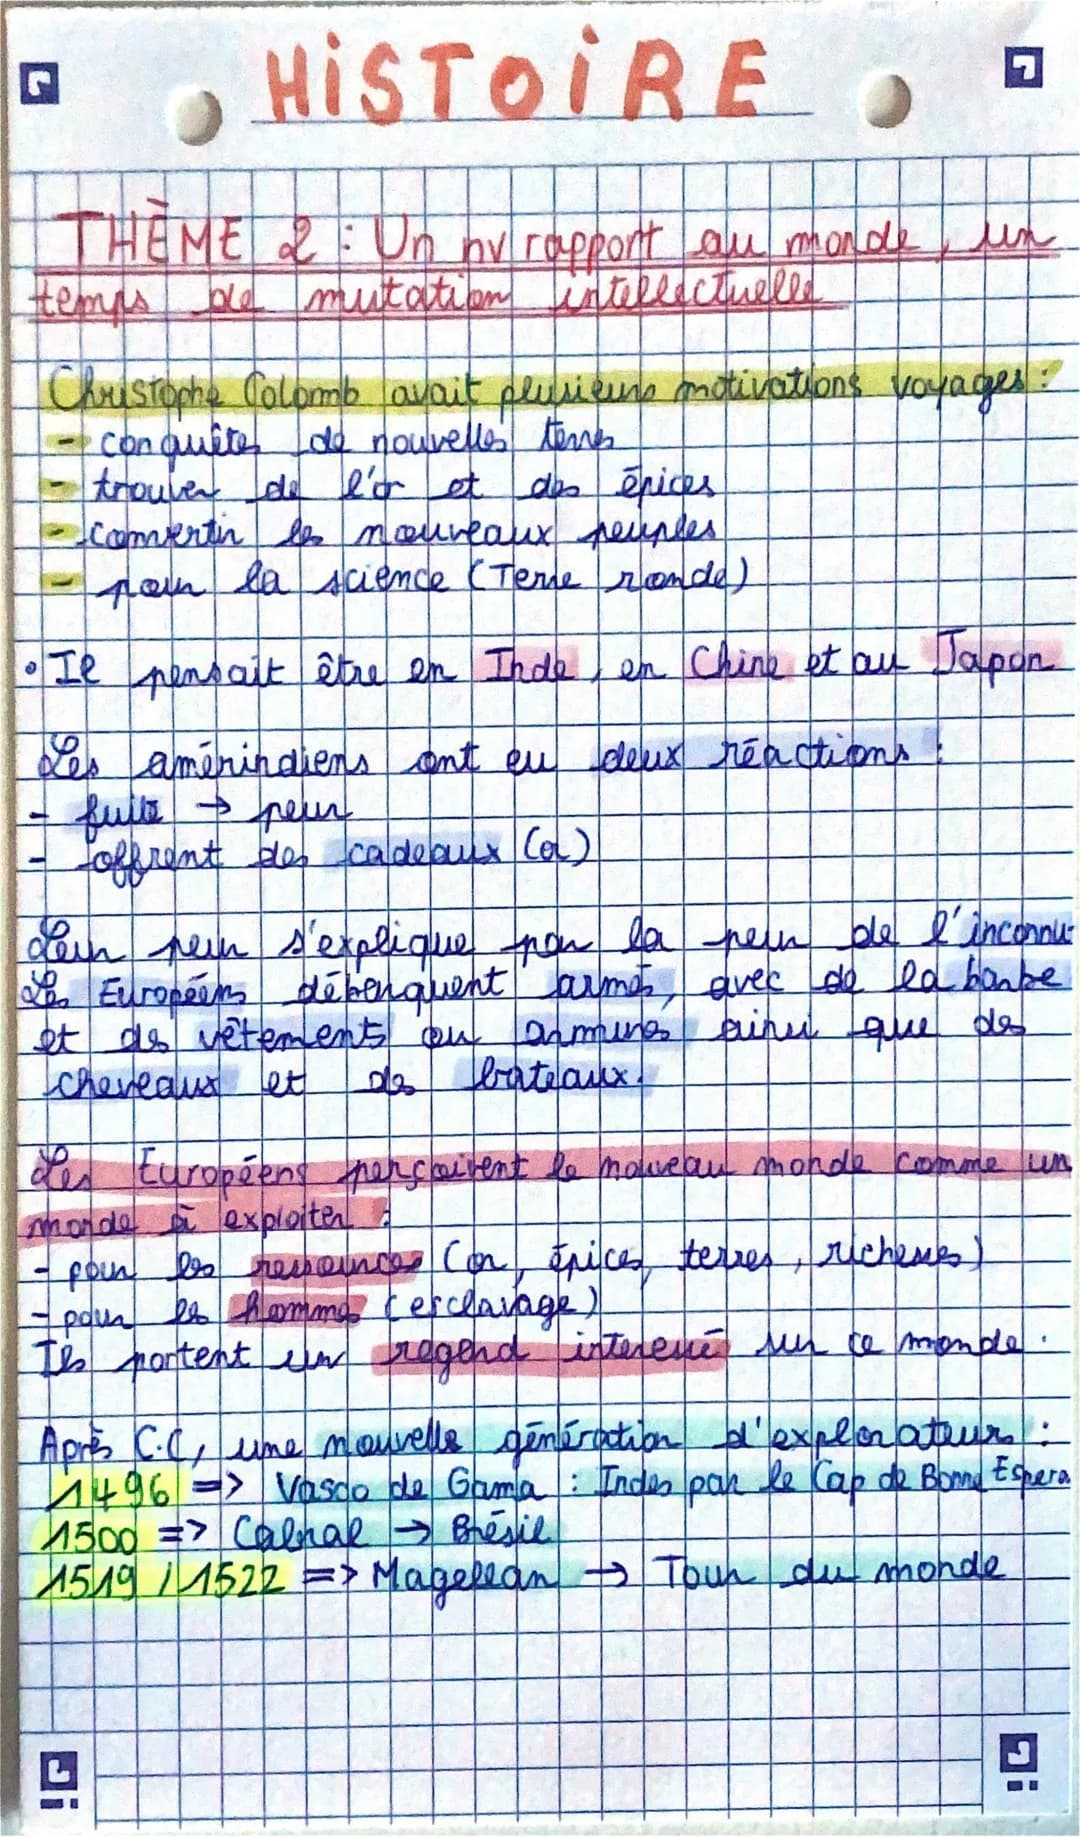 HiSTOiRE
THÈME 2 : Un nv rapport au monde, un
temps de mutation intellectuelle
Christophe Colomb avait plusieurs motivations voyages :
- conquêtes de nouvelles terres
- trouver de l'or et des épices
- convertir les nouveaux peuples
- pour la science (Terre ronde)
• Il pensait être en Inde, en Chine et au Japon
Les amérindiens ont eu deux réactions :
- fuite → peur
- offrent des cadeaux (or)
Leur peur s'explique par la peur de l'inconnu.
Les Européens débarquent armés, avec de la barbe
et des vêtements ou armures ainsi que des
cheveaux et des bateaux.
Les Européens perçoivent le nouveau monde comme un
monde à exploiter :
- pour les ressources (or, épices, terres, richesses)
- pour les hommes (esclavage)
Ils portent un regard intéressé sur ce monde.
Après C.C, une nouvelle génération d'explorateurs :
1496 => Vasco de Gama : Indes par le Cap de Bonne Espera
1500 => Cabral → Brésil
1519 / 1522 => Magellan → Tour du monde